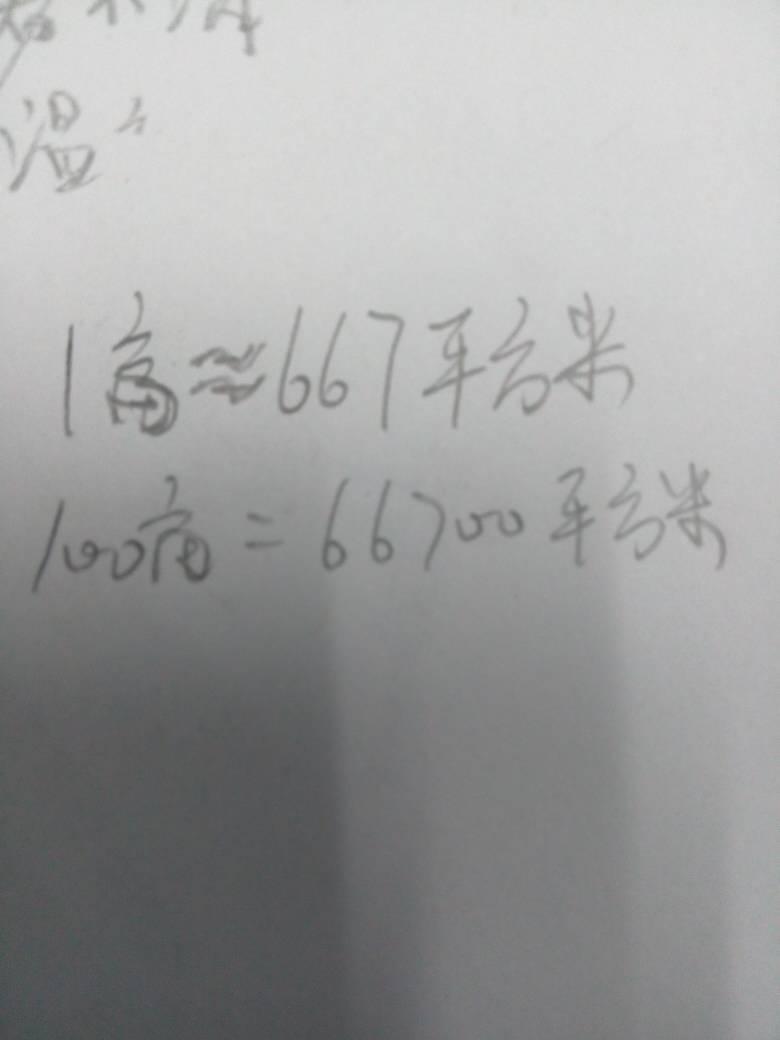 温
1亩≈667平方米
100亩=66700平方米